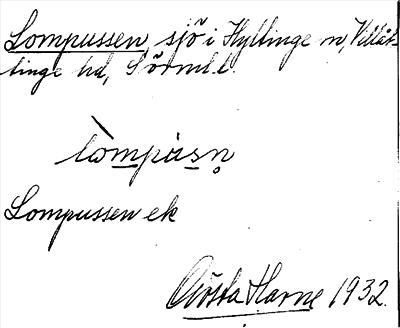 Lompussen, sjö i Hyltinge sn, Villåt-
tinge hd, Sörml. l.
lòmpàsṇ
Lompussen ek
Gösta Harne 1932.